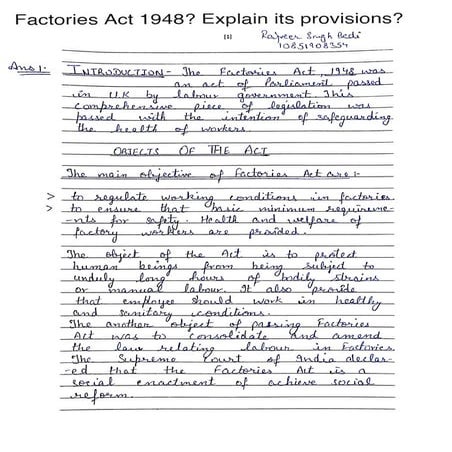 Factories Act 1948? Explain its provisions?
[1]
Rajveer Singh Bedi
10851908354
Ans 1. INTRODUCTION- The Factories Act, 1948 was
an act of Parliament passed
in U.K by labour government. This
comprehensive piece of legislation was
passed with the intention of safeguarding
the health of workers.
OBJECTS OF THE ACT
The main objective of Factories Act are:-
> to regulate working conditions in factories.
> to ensure that basic minimum requireme-
-nts for safety, Health and welfare of
factory workers are provided.
The object of the Act is to protect
human beings from being subject to
unduly long hours of bodily strains
or manual labour. It also provide
that employee should work in healthy
and sanitary conditions.
The another object of passing Factories
Act was to consolidate and amend
the law relating labour in Factories.
The Supreme Court of India declar-
-ed that the Factories Act is a
social enactment of achieve social
reform.